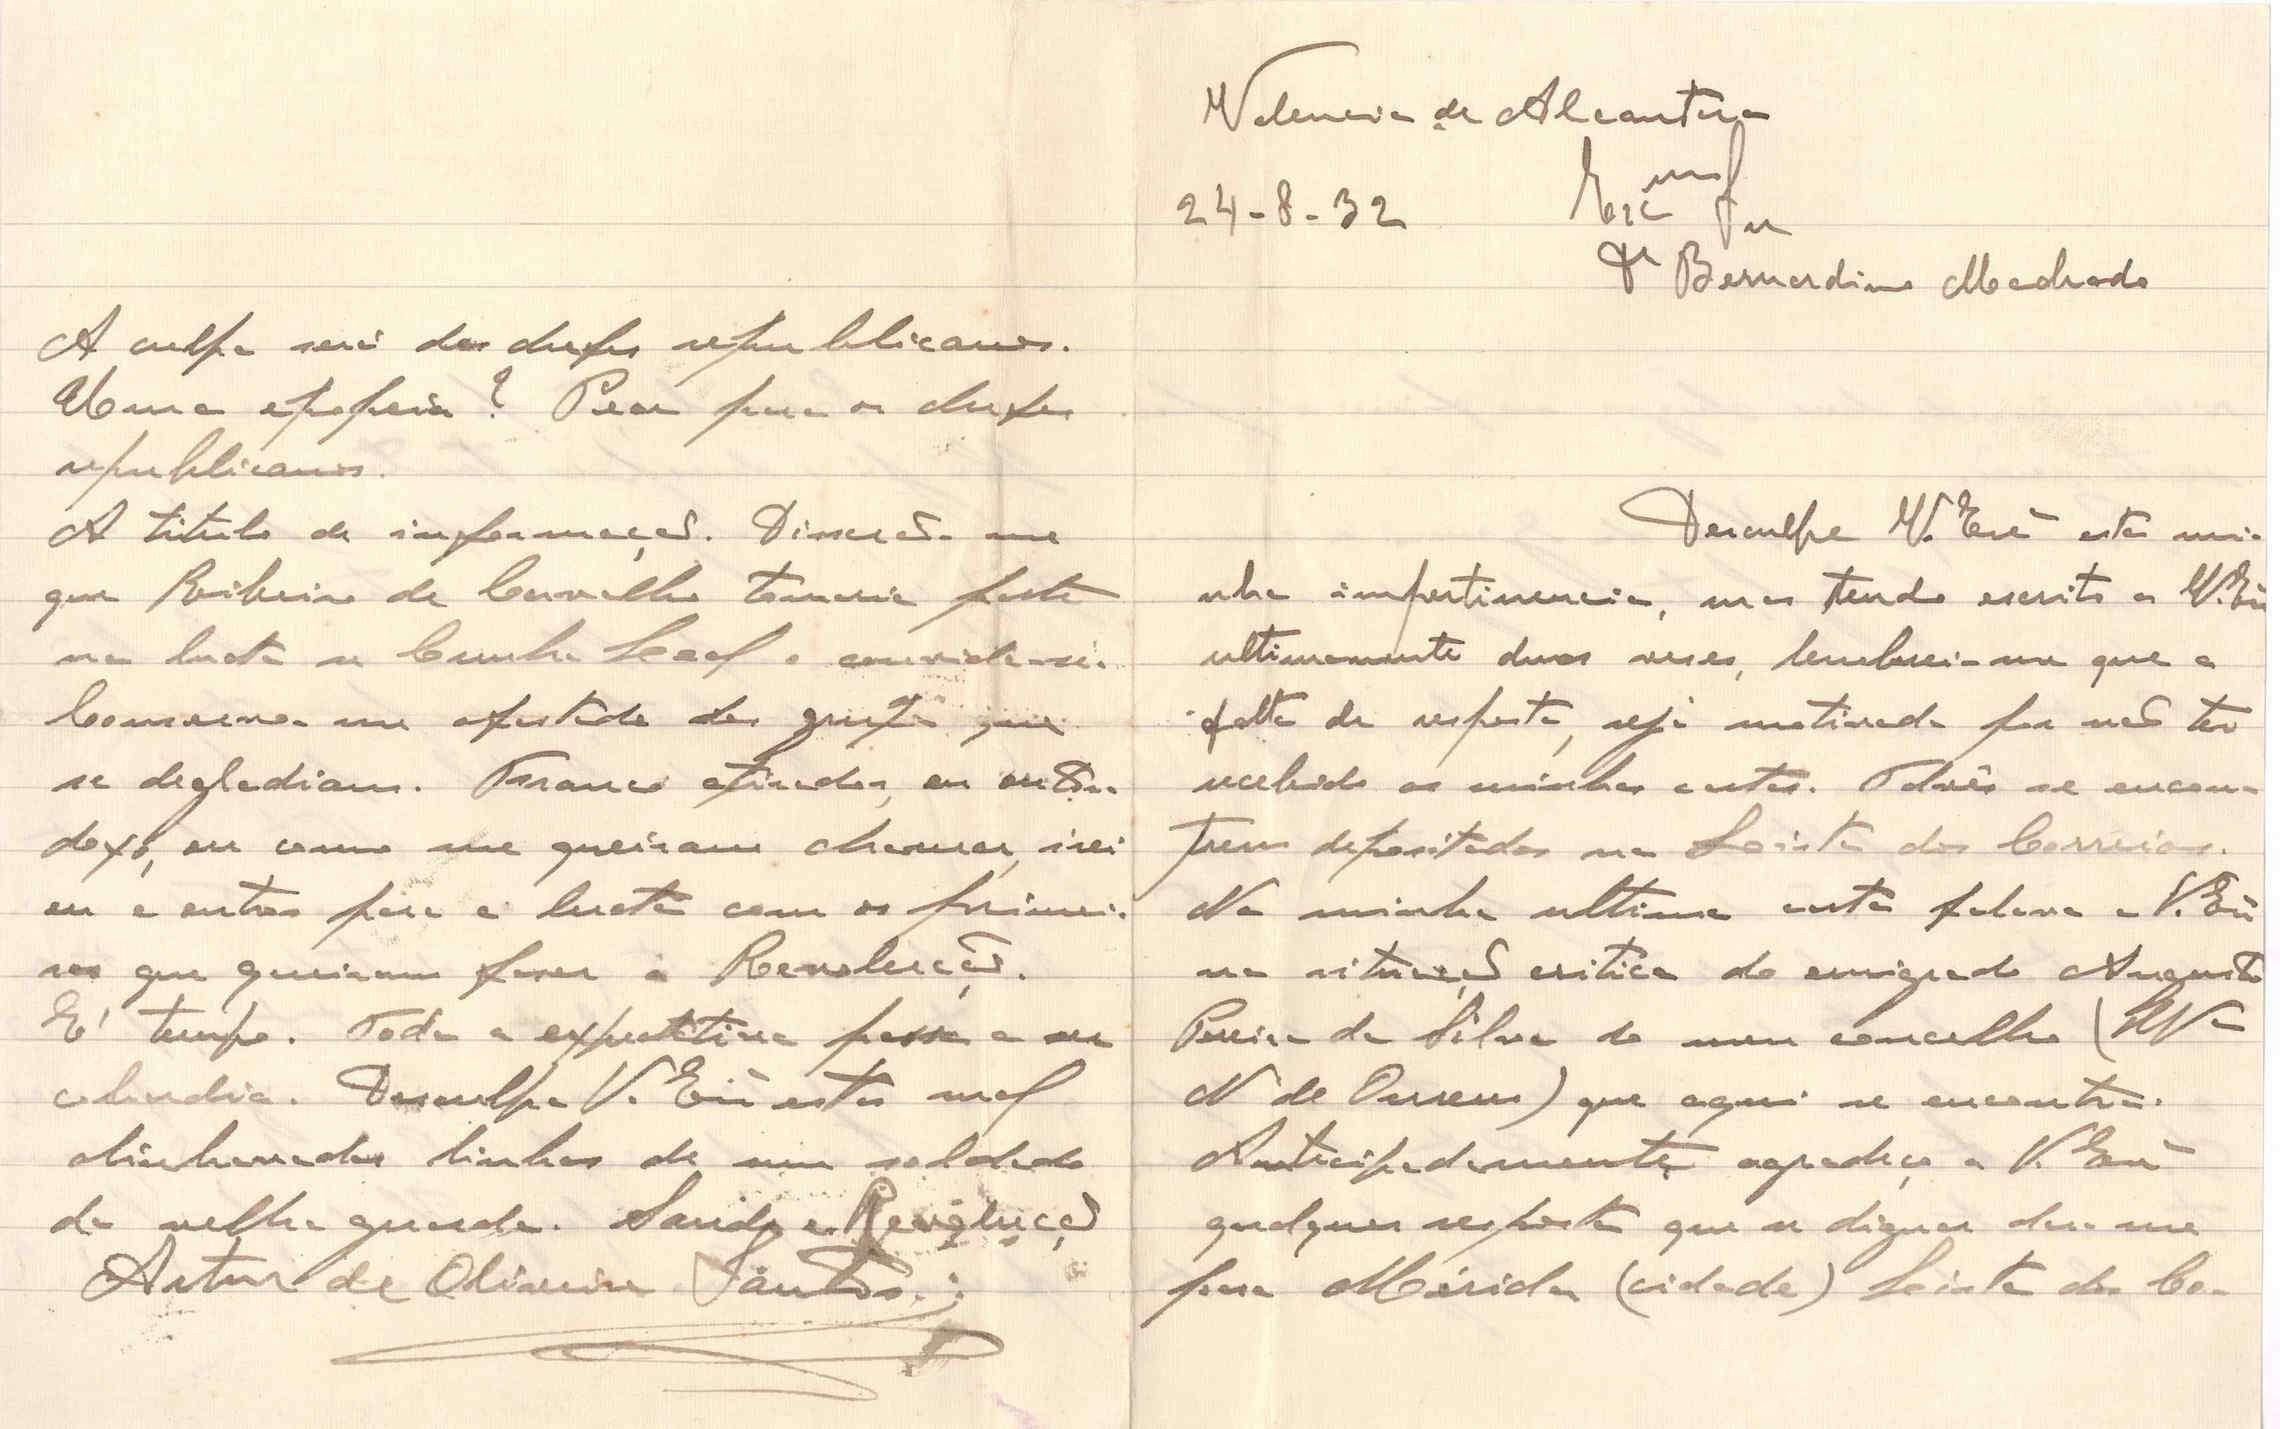 Valencia de Alcantara
24-8-32
Exmº Snr
Dr Bernardino Machado
Desculpe V. Exª esta mi-
nha impertinencia, mas tendo escrito a V. Exª
ultimamente duas veses, lembrei-me que a
falta de resposta, seja motivada por não ter
recebido as minhas cartas. Talvês se encon-
trem depositadas na Loista dos Correios.
Na minha ultima carta falava a V. Exª
na situação critica do emigrado Augusto
Pereira da Silva do meu concelho (Vª
N de Ourem) que aqui se encontra.
Antecipadamente agradeço a V. Exª
qualquer resposta que se digne dar-me
para Mérida (cidade) Loista dos Co-
A culpa será dos chefes republicanos.
Uma epopeia? Peor para os chefes
republicanos.
A titulo de informação. Disserão-me
que Ribeiro de Carvalho tomaria parte
na lucta se Cunha Leal o
Conservo-me afastado dos grupos que
se degladiam. Franco atirador, ou orto-
doxo, ou como me queiram chamar, irei
eu e outros para a lucta com os primei-
ros que queiram faser a Revolução.
E' tempo. Toda a expectativa passa a ser
cobardia. Desculpe V. Exª estas mal
alinhavadas linhas de um soldado
da velha guarda. Saude e Revolução
Artur de Oliveira Santos.